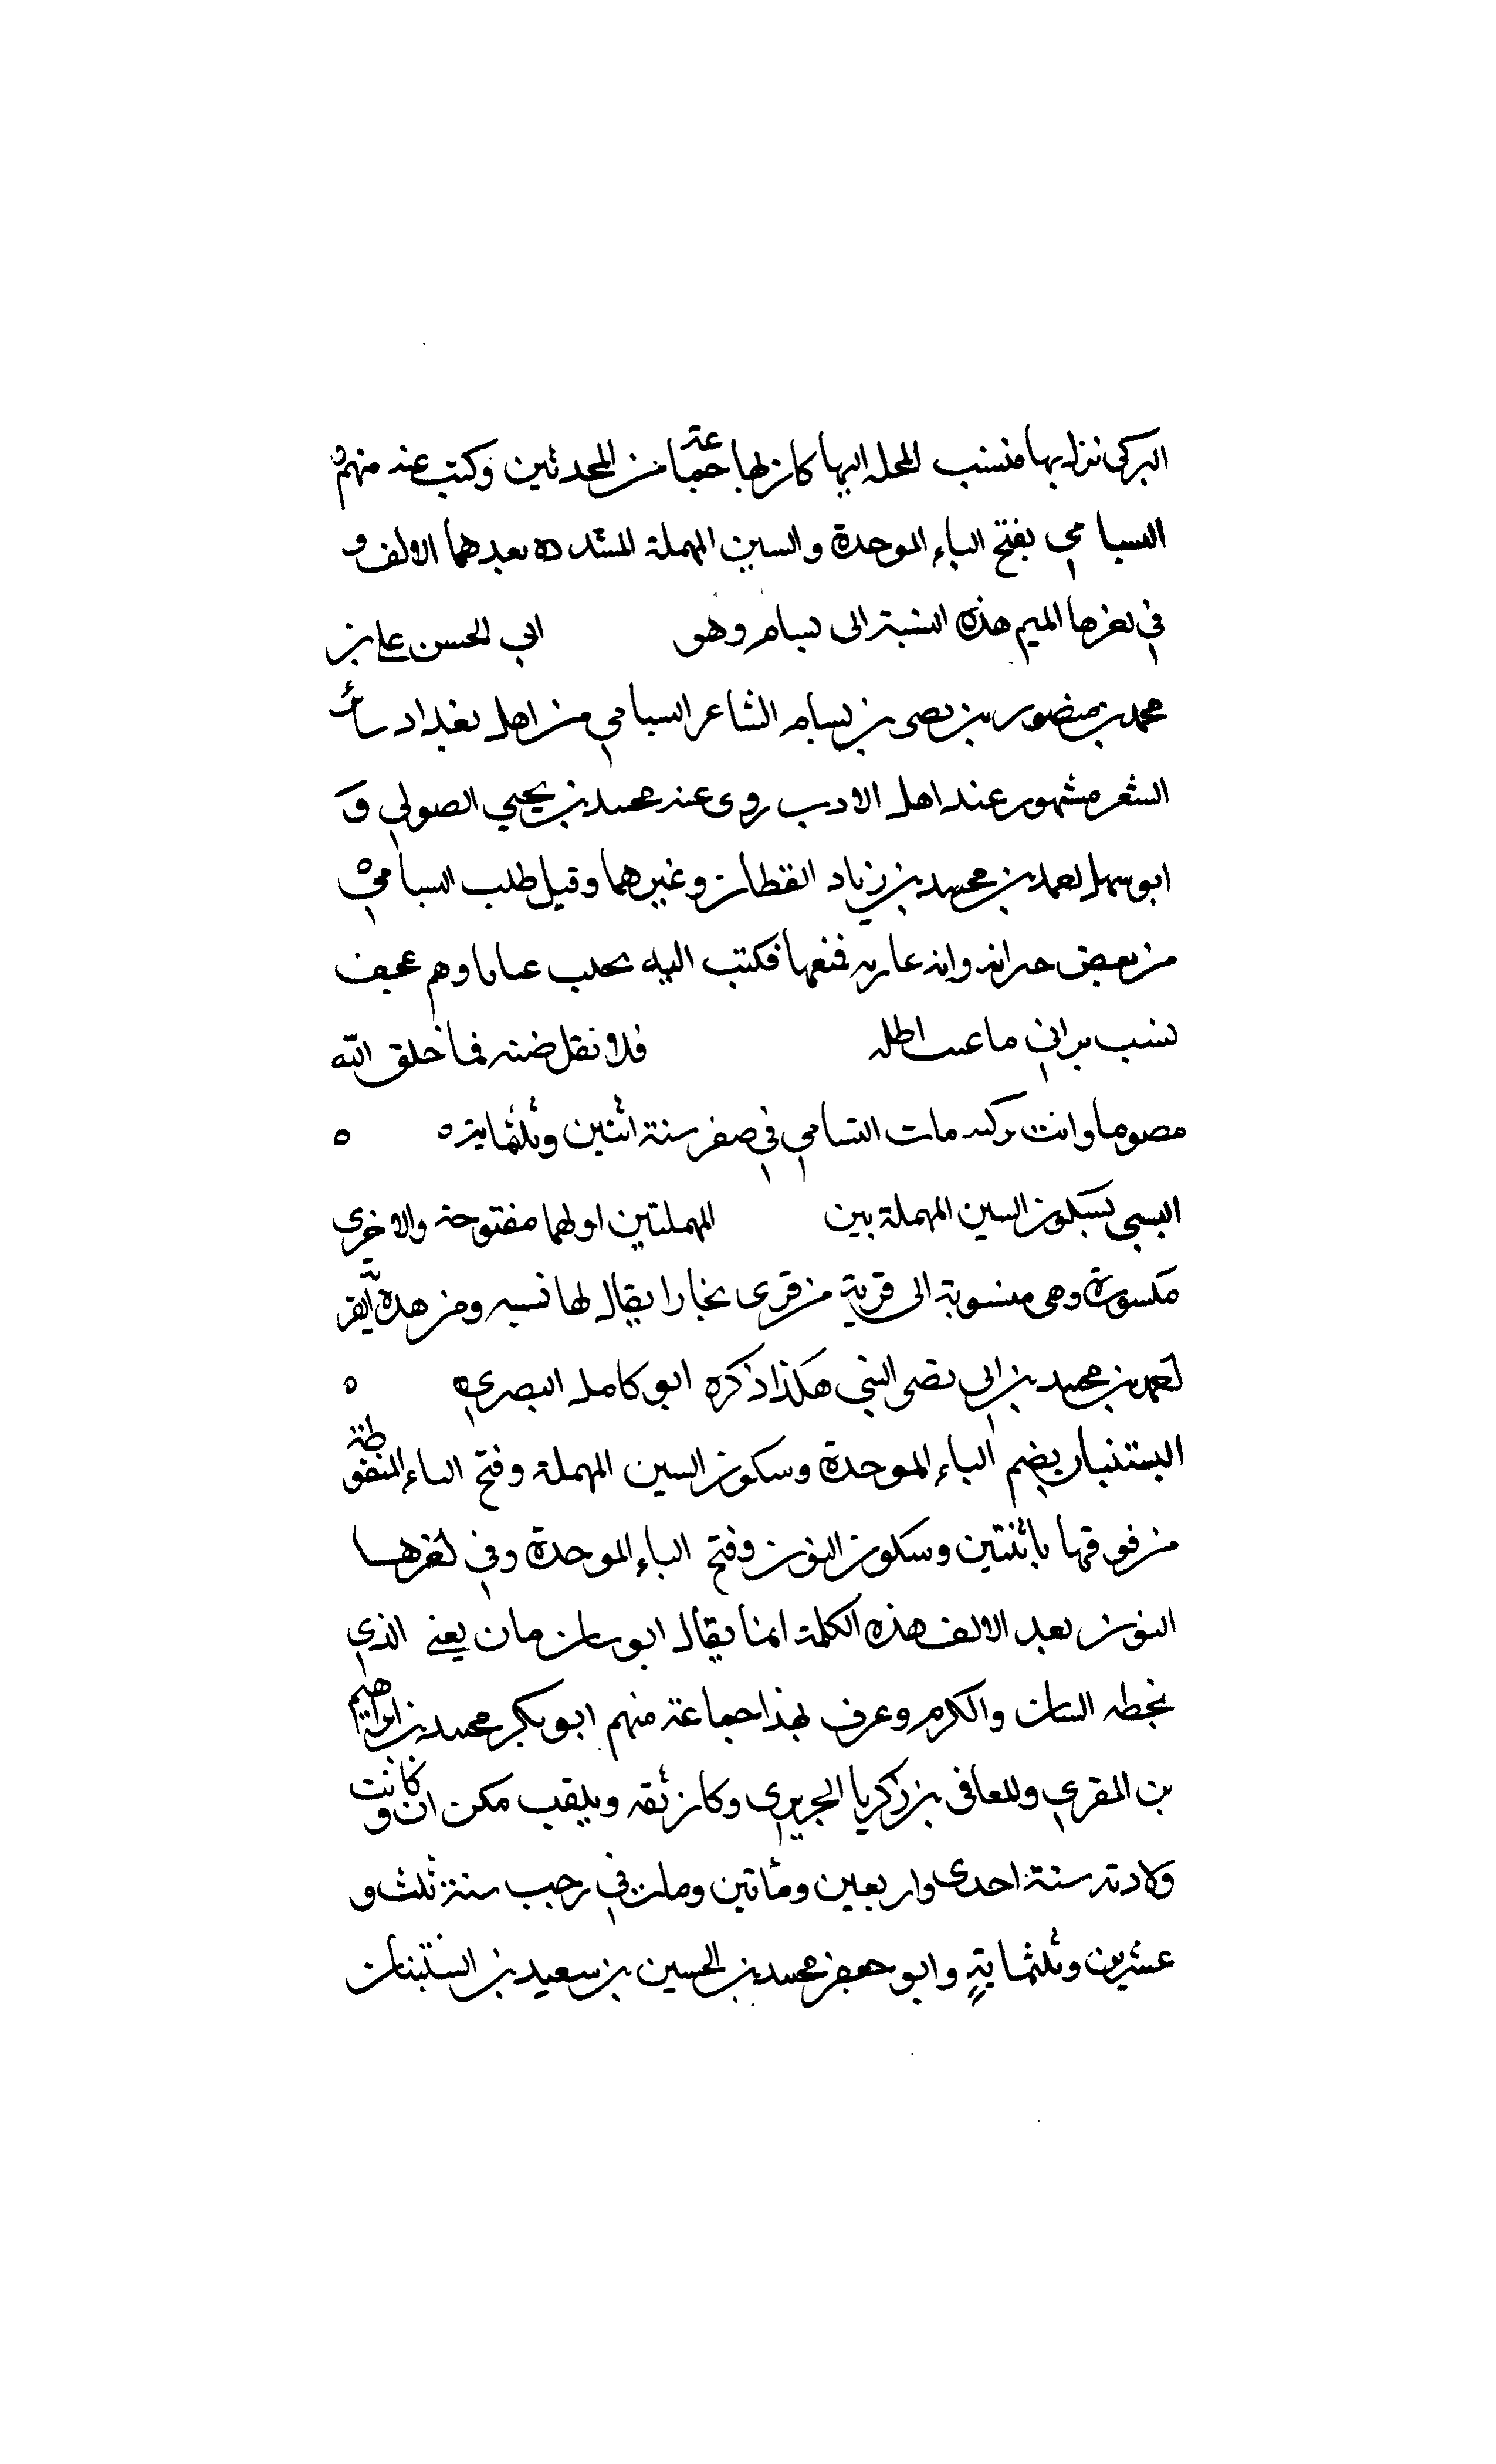 البركي نزل بها فنسب المحله اليها كان بها جماعة من المحدثين وكتب عنه منهم ه
البسامي بفتح الباء الموحدة والسين المهملة المشدده بعدهما الالف و
في اخرها الميم هذه النسبة الى بسام وهو ابي الحسن علي بن
محمد بن منصور بن نصر بن بسام الشاعر البسامي من اهل بغداد سائر
الشعر مشهور عند اهل الادب روى عنه محمد بن يحيي الصولي و
ابو سهل احمد بن محمد بن زياد القطان وغيرهما وقيل طلب البسامي ه
من بعض جيرانه دابه عاريه فمنعها فكتب اليه
فلا نقل صنته فما خلق الله
مصوما وانت مات البسامي في صفر سنة اثنين وثلثماية ه ه
البسبي بسكون السين المهملة بين المهملتين اولهما مفتوحة والاخرى
مكسورة وهي منسوبة الى قرية من قرى بخارا يقال لها بسبه ومن هذه القرية
احمد بن محمد بن ابي نصر البسبي هكذا ذكره ابو كامل البصري ه
البستنبان بضم الباء الموحدة وسكون السين المهملة وفتح التاء المنقوطة
من فوقها باثنتين وسكون النون وفتح الباء الموحدة وفي اخرها
النون بعد الالف هذه الكلمة انما يقال بوستان بان يعني الذي
يحفظه البستان والكرم وعرف بهذا جماعة منهم ابو بكر محمد بن ابراهيم
بن المقري وللمعافى بن زكريا الجريري وكان ثقه ويلقب مكن ان وكانت
ولادته سنة احدى واربعين ومأتين ومات في رجب سنة ثلث و
عشرين وثلثماية وابو جعفر محمد بن الحسين بن سعيد بن البستنبان